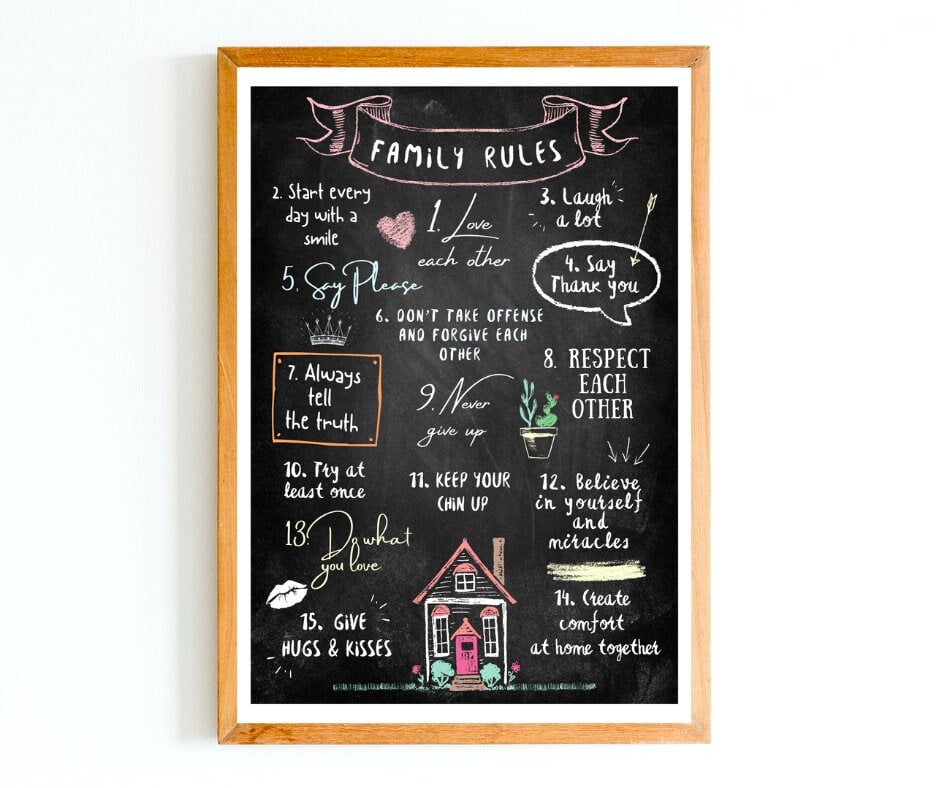 FAMILY RULES
1. Love
each other
2. Start every
day with a
smile
3. Laugh
a lot
4. Say
Thank you
5. Say Please
6. DON'T TAKE OFFENSE
AND FORGIVE EACH
OTHER
7. Always
tell
the truth
8. RESPECT
EACH
OTHER
9. Never
give up
10. Try at
least once
11. KEEP YOUR
CHIN UP
12. Believe
in yourself
and
miracles
13. Do what
you love
14. Create
comfort
at home together
15. GIVE
HUGS & KISSES